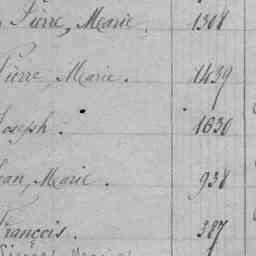 Pierre, Marie. 1308
Pierre, Marie. 1439
Joseph. 1630
Jean, Marie. 938
François. 387